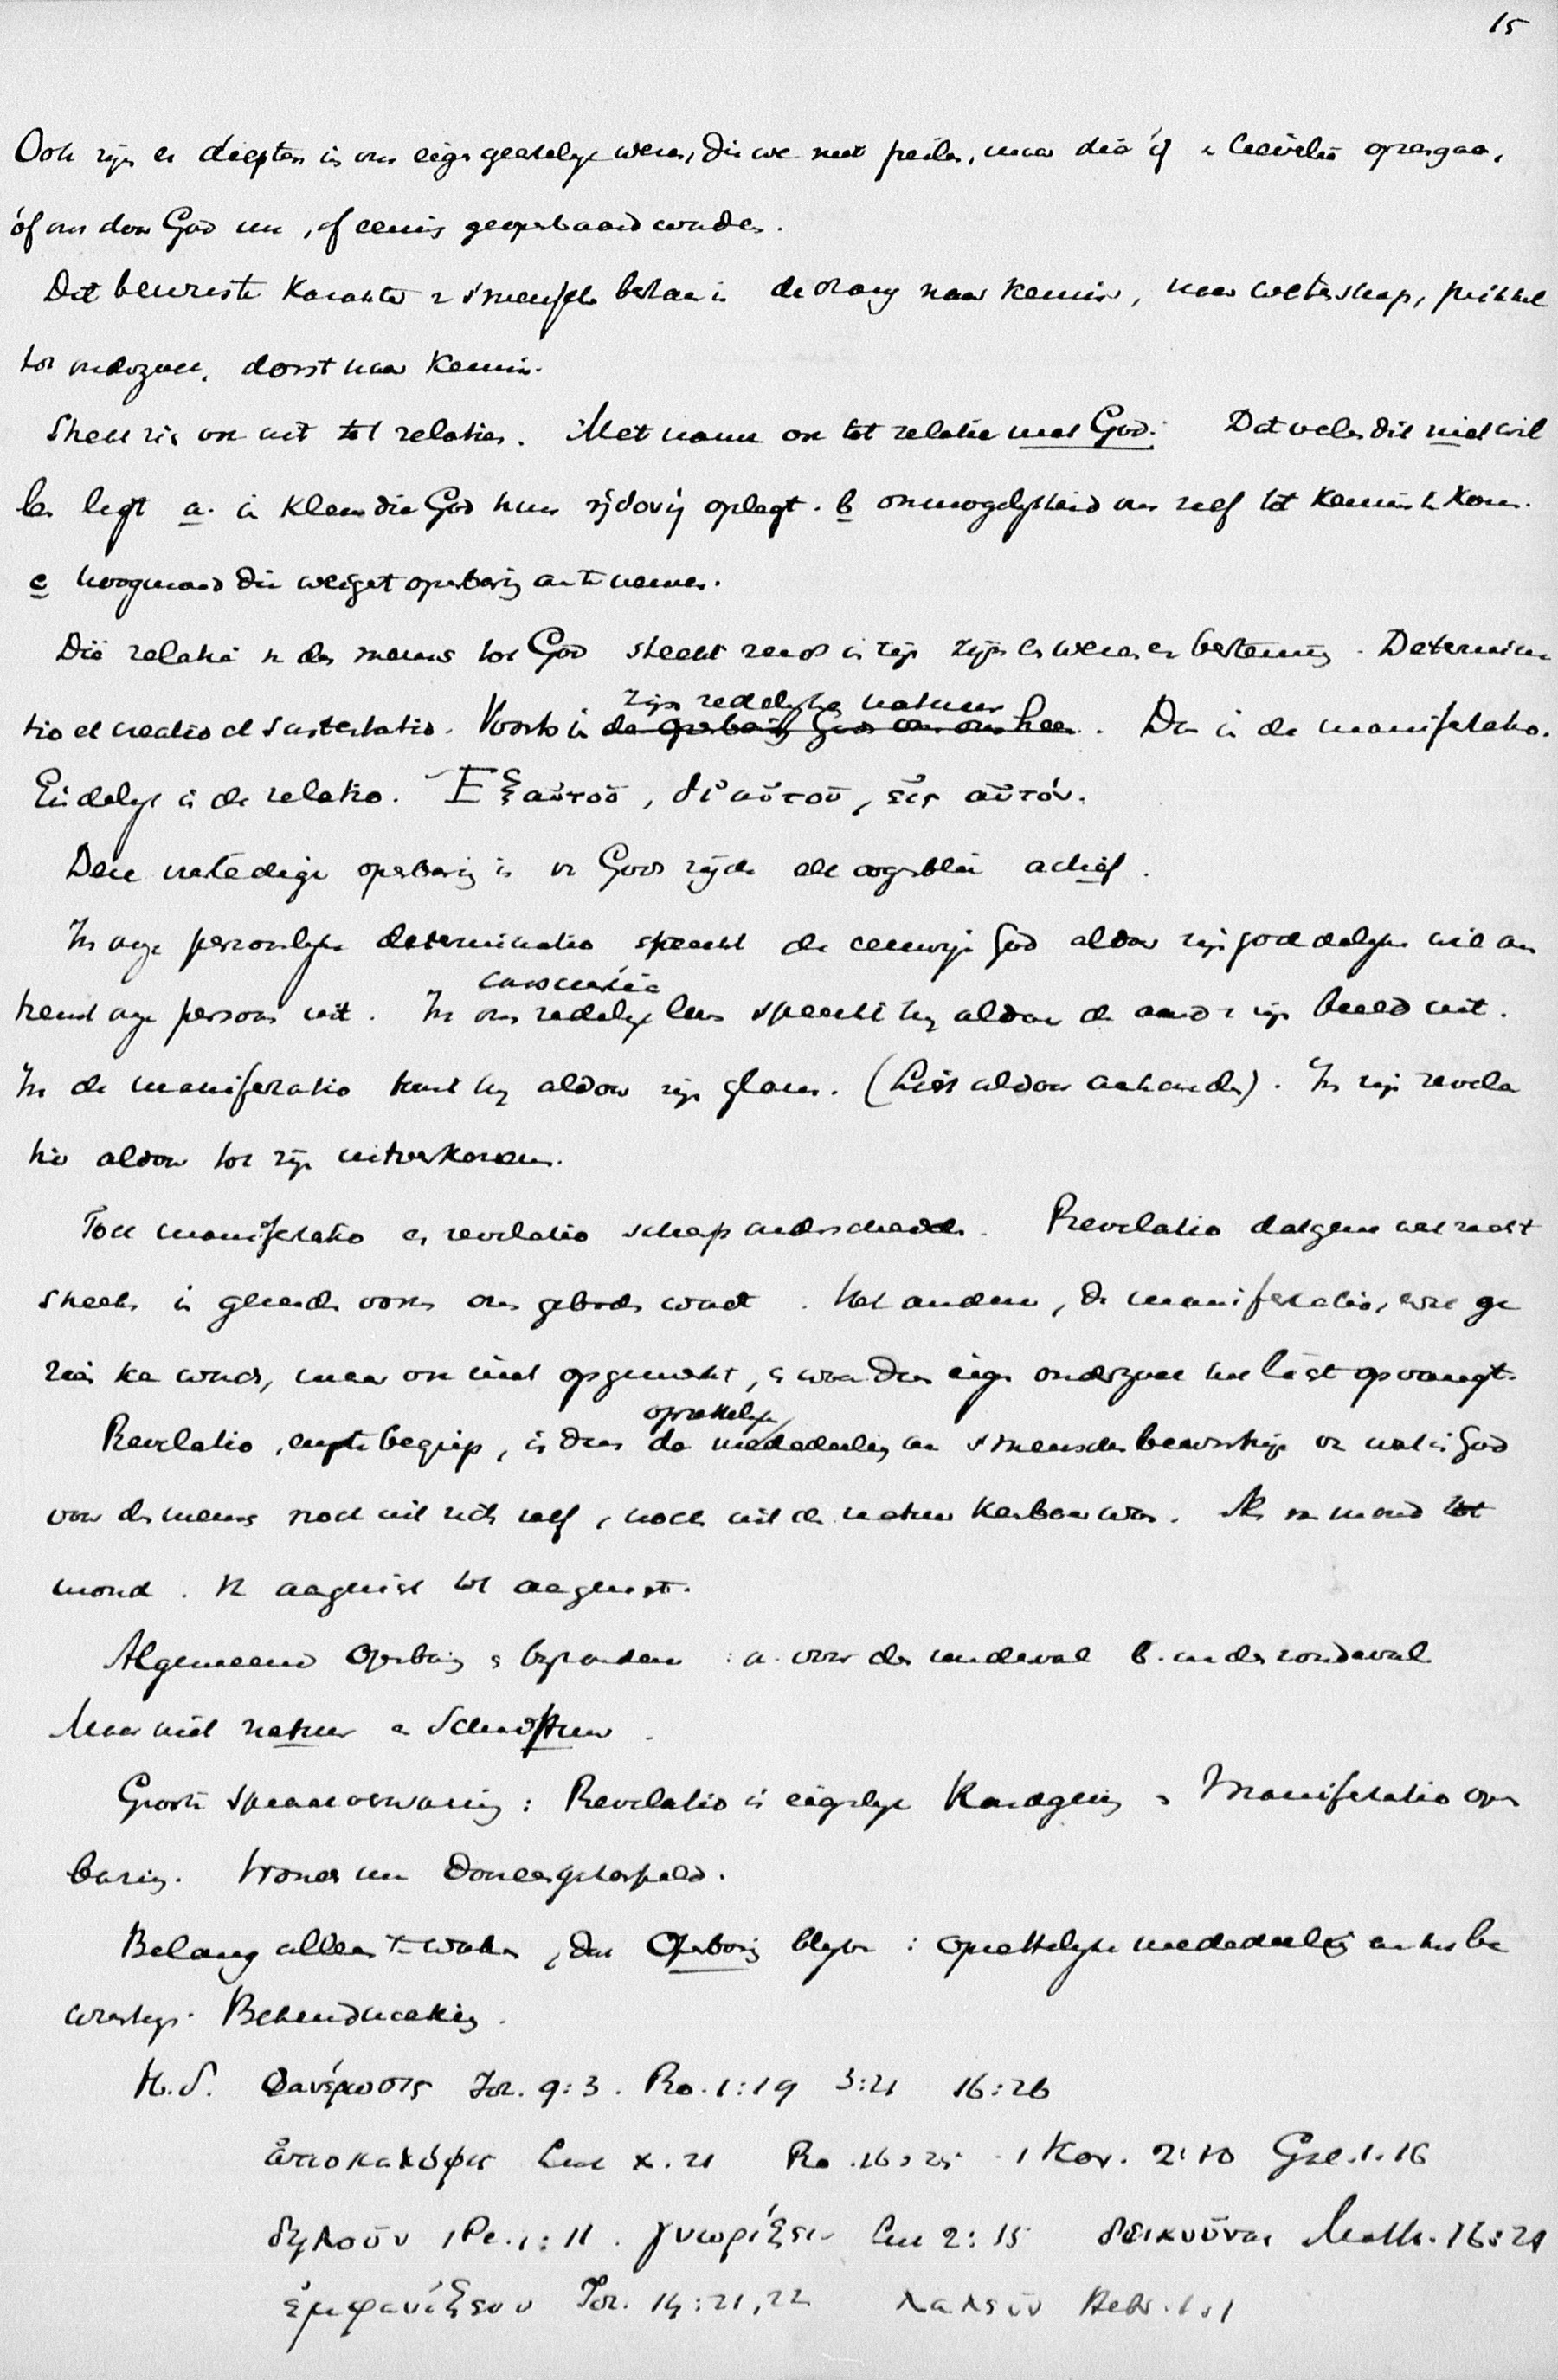 15
Ook zijn er diepten in ons eigen geestelijk wezen, die we niet peilen, maar die óf
óf ons door God nu, of eenig geopenbaard worden.
Dat bewuste karakter v 's menschen bestaan is de drang naar kennis, naar wetenschap, prikkel
tot onderzoek, dorst naar kennis.
Strekt zich ook uit tot relaties. Met name ook tot relatie met God. Dat velen dit niet wil
len ligt a. in God hun oplegt. b onmogelijkheid om zelf tot kennis te komen.
c hoogmoed die weigert openbaring aan te nemen.
Die relatie v den mensch tot God steekt reeds in zijn zijn en wezen en bestemming. Determina
tio et creatio et sustentatio. Voorts in
zijn redelijke natuur
de openbaring Gods om ons heen. Dan in de manifestatio.
Eindelijk in de relatio. Ἐξ αὐτοῦ, δι' αὐτοῦ, εἰς αὐτόν.
Deze volledige openbaring is v Gods zijde elk oogenblik actief.
In onze persoonlijke determinatio spreekt de eeuwige God aldoor zijn goddelijken wil om
trent onze persoon uit. In ons redelijk leven spreekt hij aldoor de aard v zijn beeld uit.
conscientia
In de manifestatio toont hij aldoor zijn glans. (Licht aldoor). In zijn revela
tio aldoor tot zijn uitverkorenen.
Toch manifestatio en revelatio scherp onderscheiden. Revelatio datgene wat recht
streeks in gereede vorm ons geboden wordt. Het andere, de manifestatio, wel ge
zien kan worden, maar ook niet opgemerkt, en waar den eigen onderzoek het licht opvangt.
Revelatio, engste begrip, is dus de mededeeling aan 's menschen bewustzijn v wat in God
opzettelijke
voor den mensch noch uit zich zelf, noch uit de natuur kenbaar was. Als van mond tot
mond. V aangezicht tot aangezicht.
Algemeene Openbaring en bijzondere: a. voor den zondeval b. na den zondeval
Maar niet natuur en Schriftuur.
Groote spraakverwarring: Revelatio is eigenlijk Kondgeving en Manifestatio open
baring. Worden nu dooreengehaspeld.
Belang alleen te weten, dat Openbaring blijve: opzettelijke mededeeling aan het be
wustzijn. Bekendmaking.
H.S. Φανέρωσις Joh. 9:3. Ro. 1:19 3:21 16:26
ἀποκαλύψις Luc X.21 Ro. 16:25 1 Kor. 2:10 Gal. 1.16
δηλοῦν 1 Pe. 1:11. γνωρίζειν Luc 2:15 δεικνύναι Matth. 16:21
ἐμφανίζειν Joh. 14:21,22 λαλεῖν Hebr. 1:1